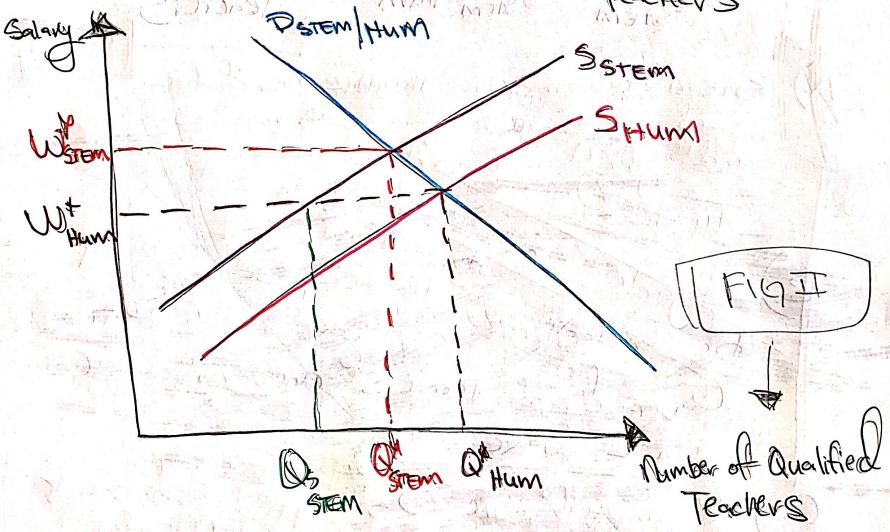 Teachers
Salary
D STEM/HUM
S STEM
S HUM
W* STEM
W* HUM
FIG II
Qs STEM
Q* STEM
Q* HUM
Number of Qualified
Teachers